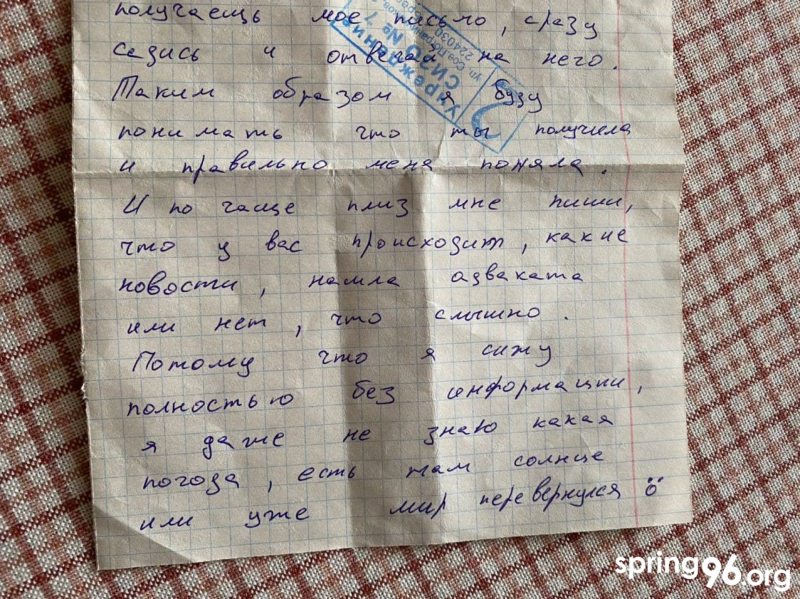 получаещь мое письмо, сразу
садись и отвечай на него.
Таким образом я буду
понимать что ты получила
и правильно меня поняла.
И по чаще плиз мне пиши,
что у вас происходит, какие
новости, нашла адваката
или нет, что слышно.
Потому что я сижу
полностью без информации,
я даже не знаю какая
погода, есть там солнце
или уже мир перевернулся ӧ
Учреждение
СИЗО № 7
224030
spring96.org